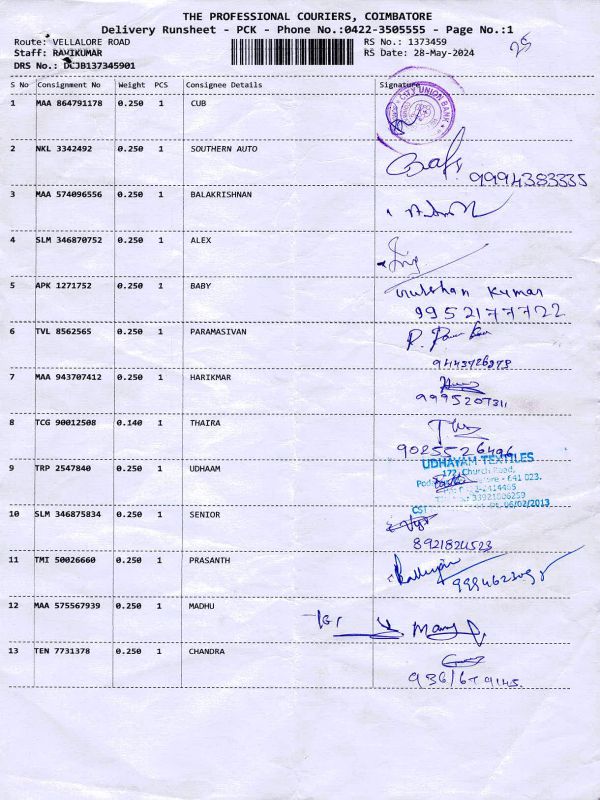 THE PROFESSIONAL COURIERS, COIMBATORE
Delivery Runsheet - PCK - Phone No.:0422-3505555 - Page No.:1
Route: VELLALORE ROAD RS No.: 1373459
Staff: RAVIKUMAR RS Date: 28-May-2024
DRS No.: DCJB137345901
25
S No Consignment No Weight PCS Consignee Details Signature
1 MAA 864791178 0.250 1 CUB
CITY UNION BANK
2 NKL 3342492 0.250 1 SOUTHERN AUTO
9994383335
3 MAA 574096556 0.250 1 BALAKRISHNAN
4 SLM 346870752 0.250 1 ALEX
5 APK 1271752 0.250 1 BABY
Kumar
9952177722
6 TVL 8562565 0.250 1 PARAMASIVAN
7 MAA 943707412 0.250 1 HARIKMAR
8 TCG 90012508 0.140 1 THAIRA
9025526496
9 TRP 2547840 0.250 1 UDHAAM
UDHAYAM TEXTILES
172, Church Road,
641 023.
CST
06/02/2013
10 SLM 346875834 0.250 1 SENIOR
11 TMI 50026660 0.250 1 PRASANTH
12 MAA 575567939 0.250 1 MADHU
13 TEN 7731378 0.250 1 CHANDRA